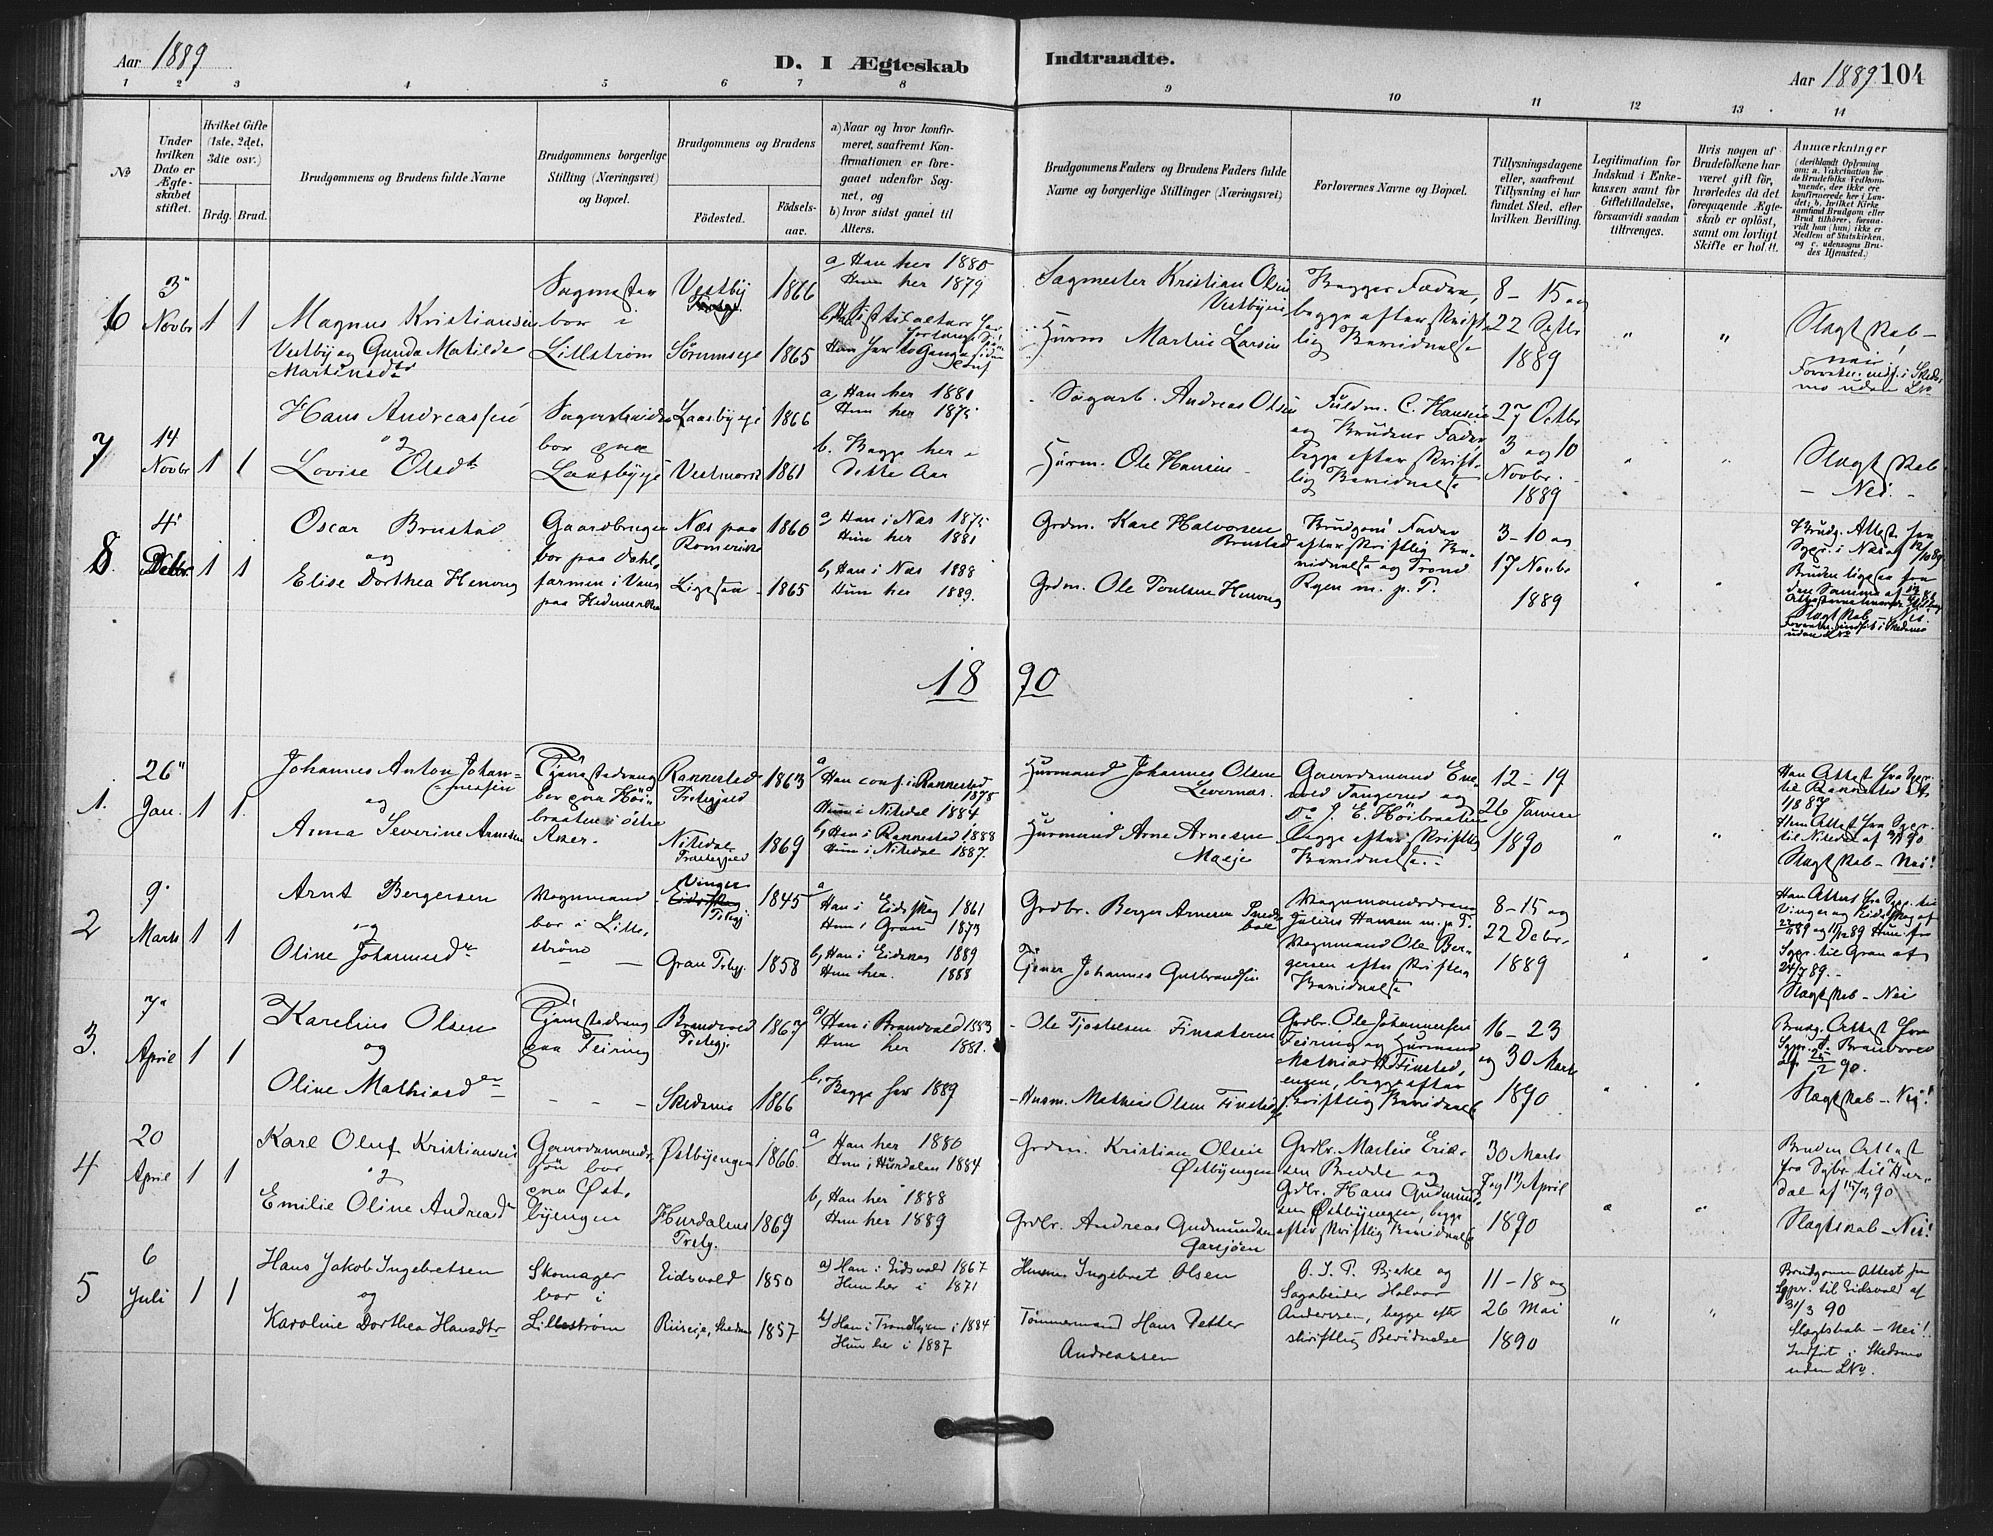 Aar 1889
D. I Ægteskab Indtraadte.
Aar 1889 104
1 2 3 4 5 6 7 8 9 10 11 12 13 14
No
Under hvilken Dato er Ægteskabet stiftet.
Hvilket Gifte (1ste, 2det, 3die osv.)
Brdg. Brud.
Brudgommens og Brudens fulde Navne
Brudgommens borgerlige Stilling (Næringsvei) og Bopæl.
Brudgommens og Brudens
Födested.
Födselsaar.
a) Naar og hvor konfirmeret, saafremt Konfirmationen er foregaaet udenfor Sognet, og
b) hvor sidst gaaet til Alters.
Brudgommens Faders og Brudens Faders fulde Navne og borgerlige Stillinger (Næringsvei)
Forlovernes Navne og Bopæl.
Tillysningsdagene eller, saafremt Tillysning ei har fundet Sted, efter hvilken Bevilling.
Legitimation for Indskud i Enkekassen samt for Giftetilladelse, forsaavidt saadan tiltrænges.
Hvis nogen af Brudefolkene har været gift för, hvorledes da det foregaaende Ægteskab er oplöst, samt om lovligt Skifte er holdt.
Anmærkninger
(deriblandt Oplysning om: a. Vaccination for de Brudefolks Vedkommende, der ikke ere konfirmerede her i Landet; b. hvilket Kirkesamfund Brudgom eller Brud tilhörer, forsaavidt han (hun) ikke er Medlem af Statskirken, og c. udensogns Brudes Hjemsted.)
6
3 Novbr
1 1
Magnus Kristiansen
Vestby og Gunda Matilde
Martinsdtr
bor i
Lillstrøm
Vestby
1866
Sørumseie 1865
a Han her 1880
Hun her 1879
Sagmester Kristian Olsen
Vestbyen
Husm Martin Larsen
Begges Fædre,
begge efter skrift
lig Bevidnelse
8 – 15 og
22 Septbr
1889
" "
Slagtskab –
nei
7
14 Novbr
1 1
Hans Andreassen
og
Lovise Olsdtr
Sagarbeider
bor paa
Laasbyeie
Laasbyeie 1866
1861
a, Han her 1881
Hun her 1875
b. Begge her i
dette Aar
Sagarb. Andreas Olsen
Husm. Ole Hansen
Fuldm. C. Hansen
og Brudens Fader
begge efter skrift-
lig Bevidnelse
27 Octbr
3 og 10
Novbr.
1889
Slagtskab
– Nei. –
8
4 Debr
1 1
Oscar Brustad
og
Elise Dorthea Henung
Gaardbruger
bor paa Dahl
farmen i Vang
paa Hedemarken
Næs paa
Romerike
1860
1865
a Han i Næs 1875
Hun her 1881
b, Han i Næs 1888
Hun her 1889.
Grdm. Karl Halvorsen
Brustad
Grdm. Ole Poulsen Henung
Brudgoms Fader
efter skriftlig Be-
vidnelse og Trond
Ryen m. p. P.
3 – 10 og
17 Novbr
1889
Brudg. Attest fra
Sgpr. i Næs af
Bruden ligesaa fra
Slagtskab – Nei.
18 90
1.
26 Jan.
1 1.
Johannes Anton Johan-
nesen
og
Anna Severine Arnesen
Tjenestedreng
bor paa Høi-
braaten i østre
Aker.
Rakkestad
Prstegjeld
1863
Nitedal
Prstegjeld 1869
a Han conf. i Rakkestad
1878
Hun i Nitedal 1884
b, Han i Rakkestad 1888
Hun i Nitedal 1887.
Husmand Johannes Olsen
Levernæs.
Husmand Arne Arnesen
Masje
Gaardsmand Ene-
vold Tangerud og
Do J. E. Høibraaten
begge efter skriftlig
Bevidnelse.
12 – 19
26 Januar
1890
" "
Han Attest fra Sgpr.
til Rakkestad
Hun Attest fra Sgpr.
til Nitedal af
Slagtskab – Nei!
2
9 Marts
1 1
Arnt Bergersen
og
Oline Johannesdtr
Vognmand
bor i Lille-
strøm
Vinger
Eidsskog
Prstgj.
1845
Gran Prstgj. 1858
a Han i Eidsskog 1861
Hun i Gran 1873
b, Han i Eidskog 1889
Hun her. 1888
Grdbr. Berger Arnesen
Tjener Johannes Gulbrandsen
Vognmandsdreng
Julius Hansen m. p. P.
Vognmand Ole Ber-
gersen efter skriftlig
Bevidnelse
8 – 15 og
22 Debr.
1889
Han Attest fra Sgpr. til
Vinger og Eidskog af
Hun fra
Sgpr. til Gran af
24/7 89.
Slagtskab – Nei
3.
7 April
1 1
Karelius Olsen
og
Oline Mathiasdtr
Tjenestedreng
paa Feiring
Brandvold
Prstgj.
1867
Skedsmo 1866
a, Han i Brandvold 1883
Hun her 1881.
b, Begge her 1889
Ole Tjostelsen Finsateren
Husm. Mathias Olsen Finstad
Grdbr. Ole Johannessen
Feiring og Husmand
Mathias Finstad,
engen, begge efter
skriftlig Bevidnelse
16 – 23
og 30 Marts
1890
Brudg. Attest fra
Sgpr. i Brandvold
af 25/2 90.
Slagtskab – Nei!
4
20 April
1 1
Karl Oluf Kristiansen
og
Emilie Oline Andreasdtr
Gaardmands-
søn bor
paa Øst-
byengen
Østbyengen 1866.
Hurdalens
Prstg. 1869
a Han her 1880
Hun i Hurdalen 1884
b, Han her 1888
Hun her 1889
Grdm. Kristian Olsen
Østbyengen
Grdbr. Andreas Gudmundsen
Garsjøen
Grdbr. Martin Erik-
sen Bredde og
Grdbr. Hans Gudmund-
sen Østbyengen, begge
efter skriftlig Bevidnelse
30 Marts
7 og 13 April
1890
Bruden Attest
fra Sgpr til Hur-
dal af 15/3 90
Slagtskab – Nei!
5
6 Juli
1 1
Hans Jakob Ingebretsen
og
Karoline Dorthea Hansdtr
Skomager
bor i
Lillestrøm
Eidsvold 1850
Riiseie, Skedsm 1857
a) Han i Eidsvold 1867
Hun her i 1871
b) Han i Trondhjem i 1884
Hun her i 1887
Husm. Ingebret Olsen
Tømmermand Hans Petter
Andreassen
O. J. P. Bjerke og
Sagabeider Halvor
Anderssen, begge eft
skriftlig Bevidnelse
11 – 18 og
26 Mai
1890
" "
Brudgom Attest fra
Sgpr. til Eidsvold af
31/3 90
Slagtskab – Nei!
Indført i Skedsmo
uden LNo.